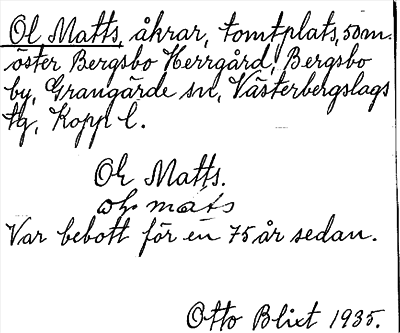 Ol Matts, åkrar, tomtplats, 50 m.
öster Bergsbo Herrgård, Bergsbo
by, Grangärde sn, Västerbergslags
tg, Kopp l.
Ol Matts.
mats
Var bebott för en 75 år sedan.
Otto Blixt 1935.